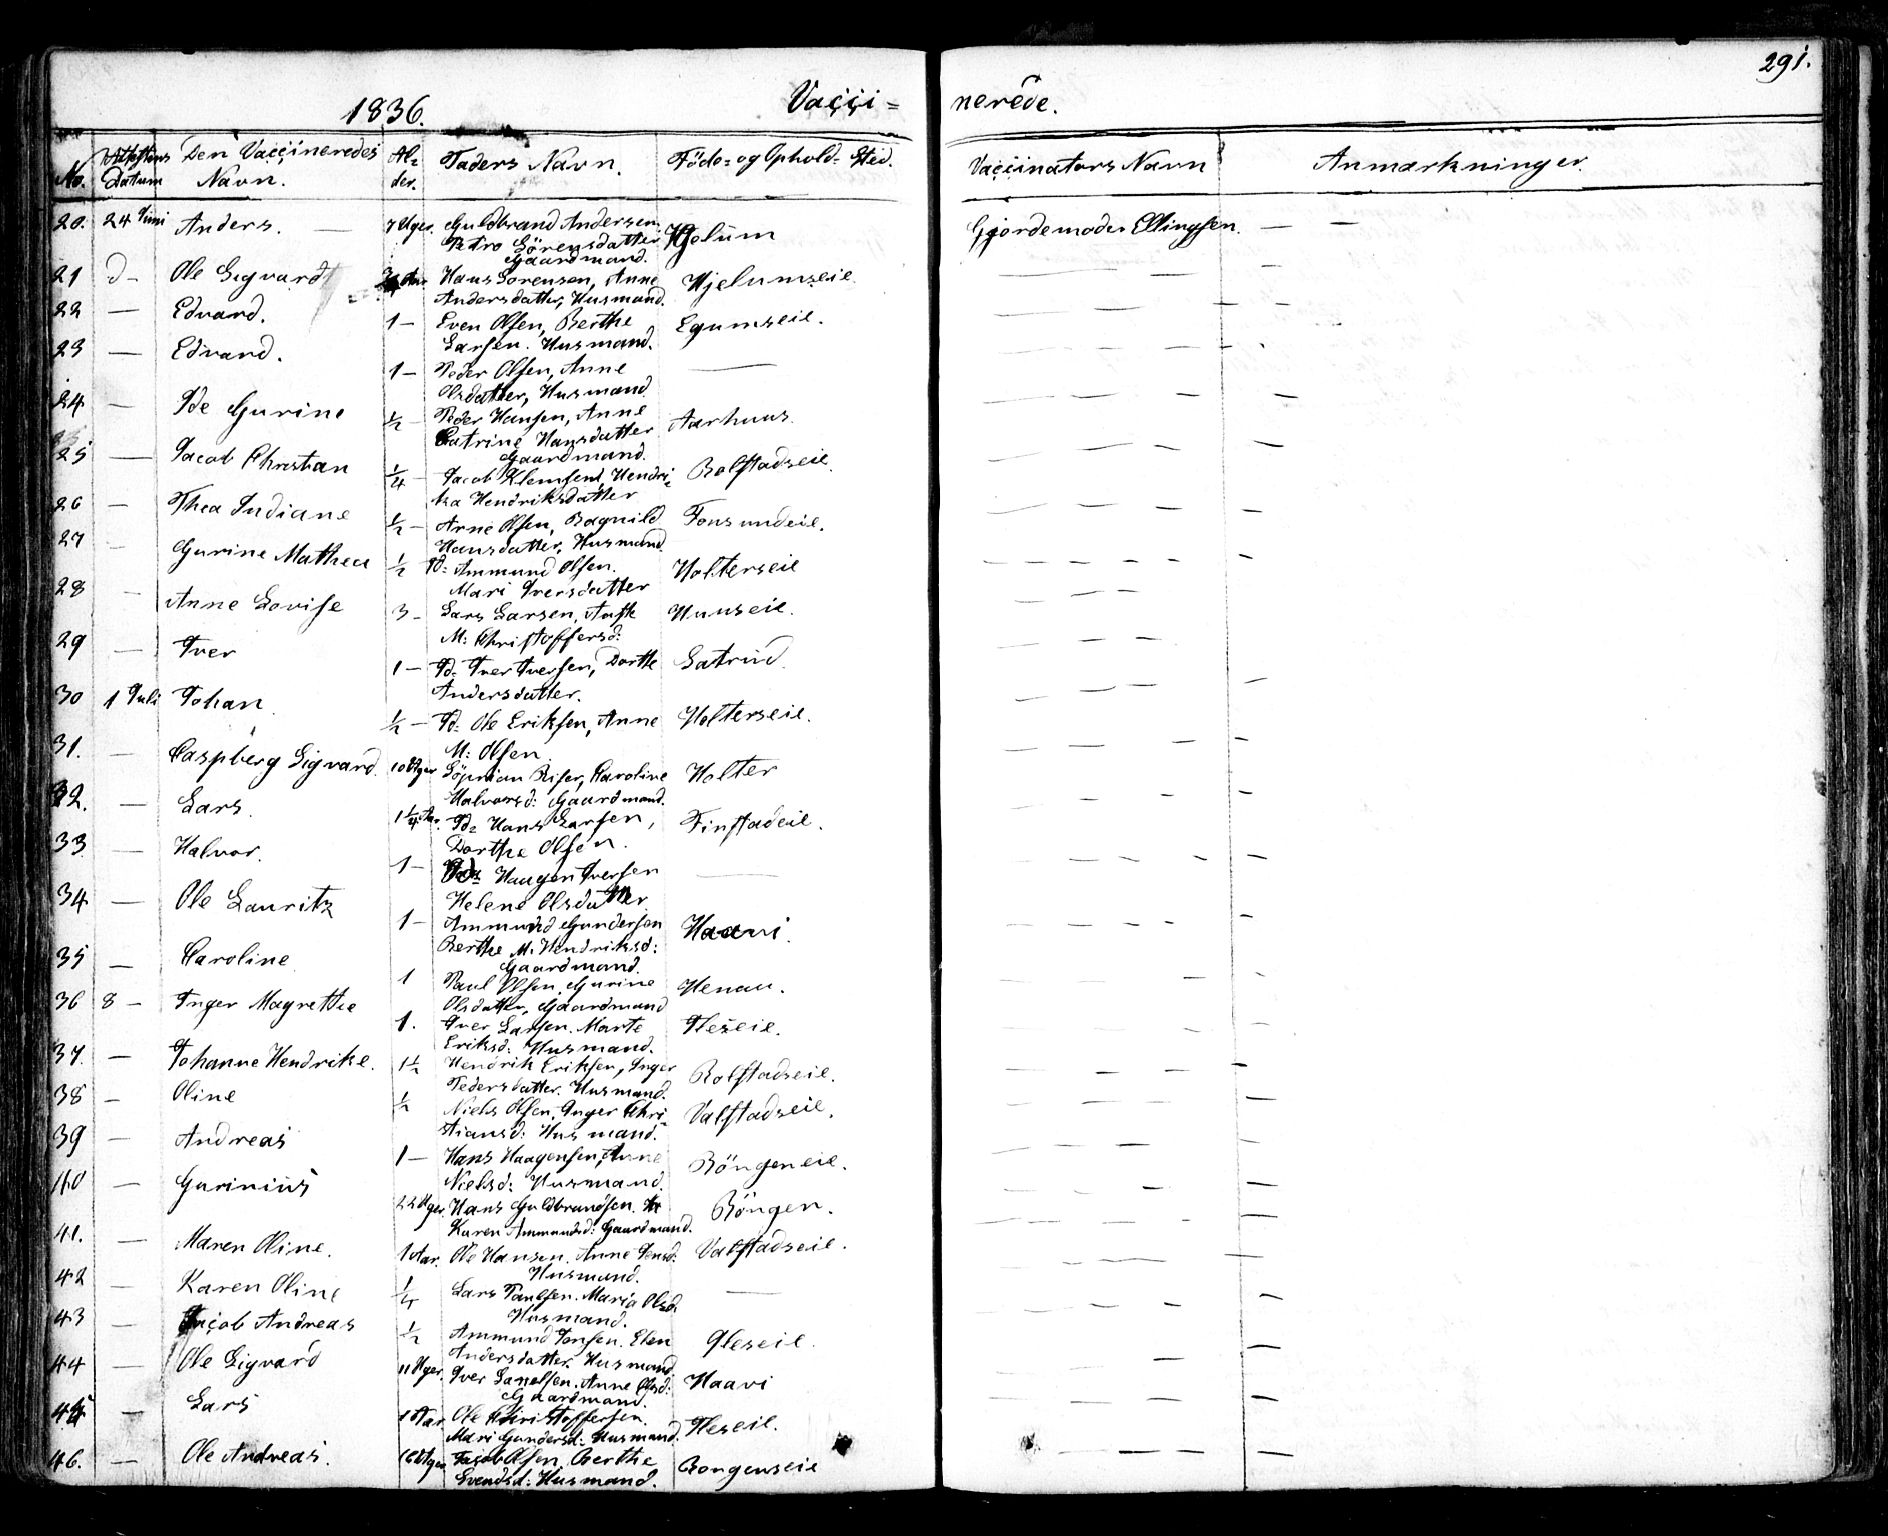 291.
1836. Vaççi= nerede.
No. Attestens Datum Den Vaççineredes Navn. Al=der. Faders Navn. Föde- og Ophold-Sted. Vaççinators Navn Anmærkninger.
20. 24 Juni Anders. — 7 Uger. Guldbrand Andersen Hjelum Gjordemoder Ellingsen. — —
Petro Sörensdatter
Gaardmand.
21 d- Ole Sigvardt Aar Hans Sorensen, Anne Hjelumseie.
Andersdatter, Husmand.
22 — Edvard. 1 — Even Olsen, Berthe Egumseie.
Larsen. Husmand.
23 — Edvard. 1 — Peder Olsen, Anne —
Olsdatter, Husmand.
24 — Ide Gurine ½ — Peder Hansen, Anne Aarhuus.
Catrine Hansdatter
Gaardmand.
25 — Jacob Christian ¼ — Jacob Klemsen, Hendri= Rolfstadseie.
ka Hendriksdatter
26 — Thea Indiane ½ — Arne Olsen, Ragnild Fonsundeie.
Hansdatter, Husmand.
27 — Gurine Mathea ½ Id: Ammund Olsen. Holterseie
Mari Iversdatter
28 — Anne Lovise 3 — Lars Larsen, Huuseie.
M: Christoffersd:
29 — Iver 1 — Id: Iver Iversen, Dorthe Latrud.
Andersdatter.
30 1 Juli Johan. ½ — Id: Ole Eriksen, Anne Holterseie.
M: Olsen
31. — Caspberg Sigvard. 10 Uger Riser, Caroline Holter
Halvorsd: Gaardmand.
32. — Lars. 1¼ Aar. Id: Hans Larsen, Finstadeie.
Dorthe Olsen.
33 — Halvor. 1 — Id: Haagen Iversen —
Helene Olsdatter
34 — Ole Lauritz 1 — Ammund Gundersen Haavi.
Berthe M. Hendriksd:
Gaardmand.
35 — Caroline 1 Paul Olsen, Gurine Henau.
Olsdatter, Gaardmand
36 8 — Inger Magrethe 1. Iver Larsen. Marte Fleseie.
Eriksd: Husmand.
37. — Johanne Hendrike. 1½ Hendrik Eriksen, Inger Rolfstadseie.
Pedersdatter. Husmand.
38 — Oline ½ Niels Olsen, Inger Chri= Valstadseie.
stiansd: Husmand.
39 — Andreas 1 — Hans Haagensen, Anne Röngeneie.
Nielsd: Husmand.
40 — Gurinius 22 Uger. Hans Guldbrandsen. Röngen.
Karen Ammundsd: Gaardmand.
41. — Maren Oline. 1 Aar. Ole Hansen. Anne Jensd: Valstadseie.
Husmand.
42 — Karen Oline ¼ Lars Paulsen. Maria Olsd. —
Husmand.
43 — Jacob Andreas ½ Ammund Jensen. Elen Gleseie.
Andersdatter. Husmand
44 — Ole Sigvard 11 Uger. Iver. Anne Olsd: Haavi
Gaardmand.
45 — Lars 1 Aar. Ole Christoffersen. Fleseie.
Mari Gundersd: Husmand.
46. — Ole Andreas. 16 Uger Jacob Olsen, Berthe Rongenseie
Svendsd: Husmand.